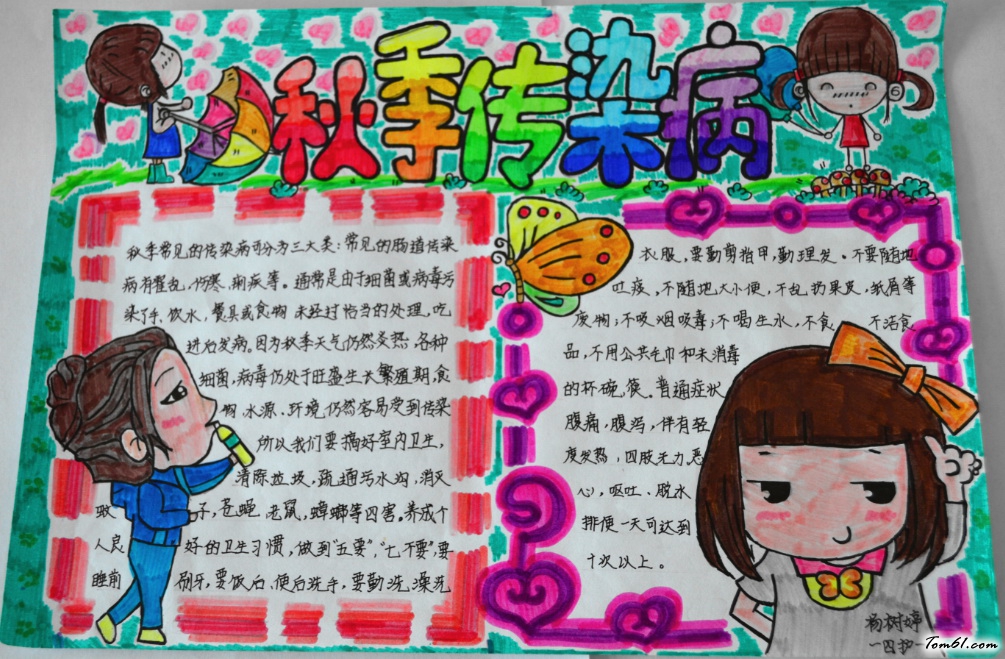 秋季传染病
秋季常见的传染病可分为三大类：常见的肠道传染
病有霍乱、伤寒、痢疾等。通常是由于细菌或病毒污
染了手、饮水、餐具或食物 未经过恰当的处理，吃
进后发病。因为秋季天气仍然炎热，各种
细菌，病毒仍处于旺盛生长繁殖期，食
物 水源、环境仍然容易受到传染
所以我们要搞好室内卫生，
清除垃圾，疏通污水沟，消灭
蚊子，苍蝇 老鼠，蟑螂等四害。养成个
人良好的卫生习惯，做到“五要”，“七不要”要
睡前刷牙，要饭后、便后洗手，要勤洗澡洗
衣服，要勤剪指甲，勤理发。不要随地
吐痰，不随地大小便，不乱扔果皮，纸屑等
废物；不吸烟吸毒；不喝生水，不食 不洁食
品，不用公共毛巾和未消毒
的杯碗，筷。普通症状
腹痛，腹泻，伴有轻
度发热，四肢无力 恶
心，呕吐、脱水
排便一天可达到
十次以上。
杨树婷
Tom61.com